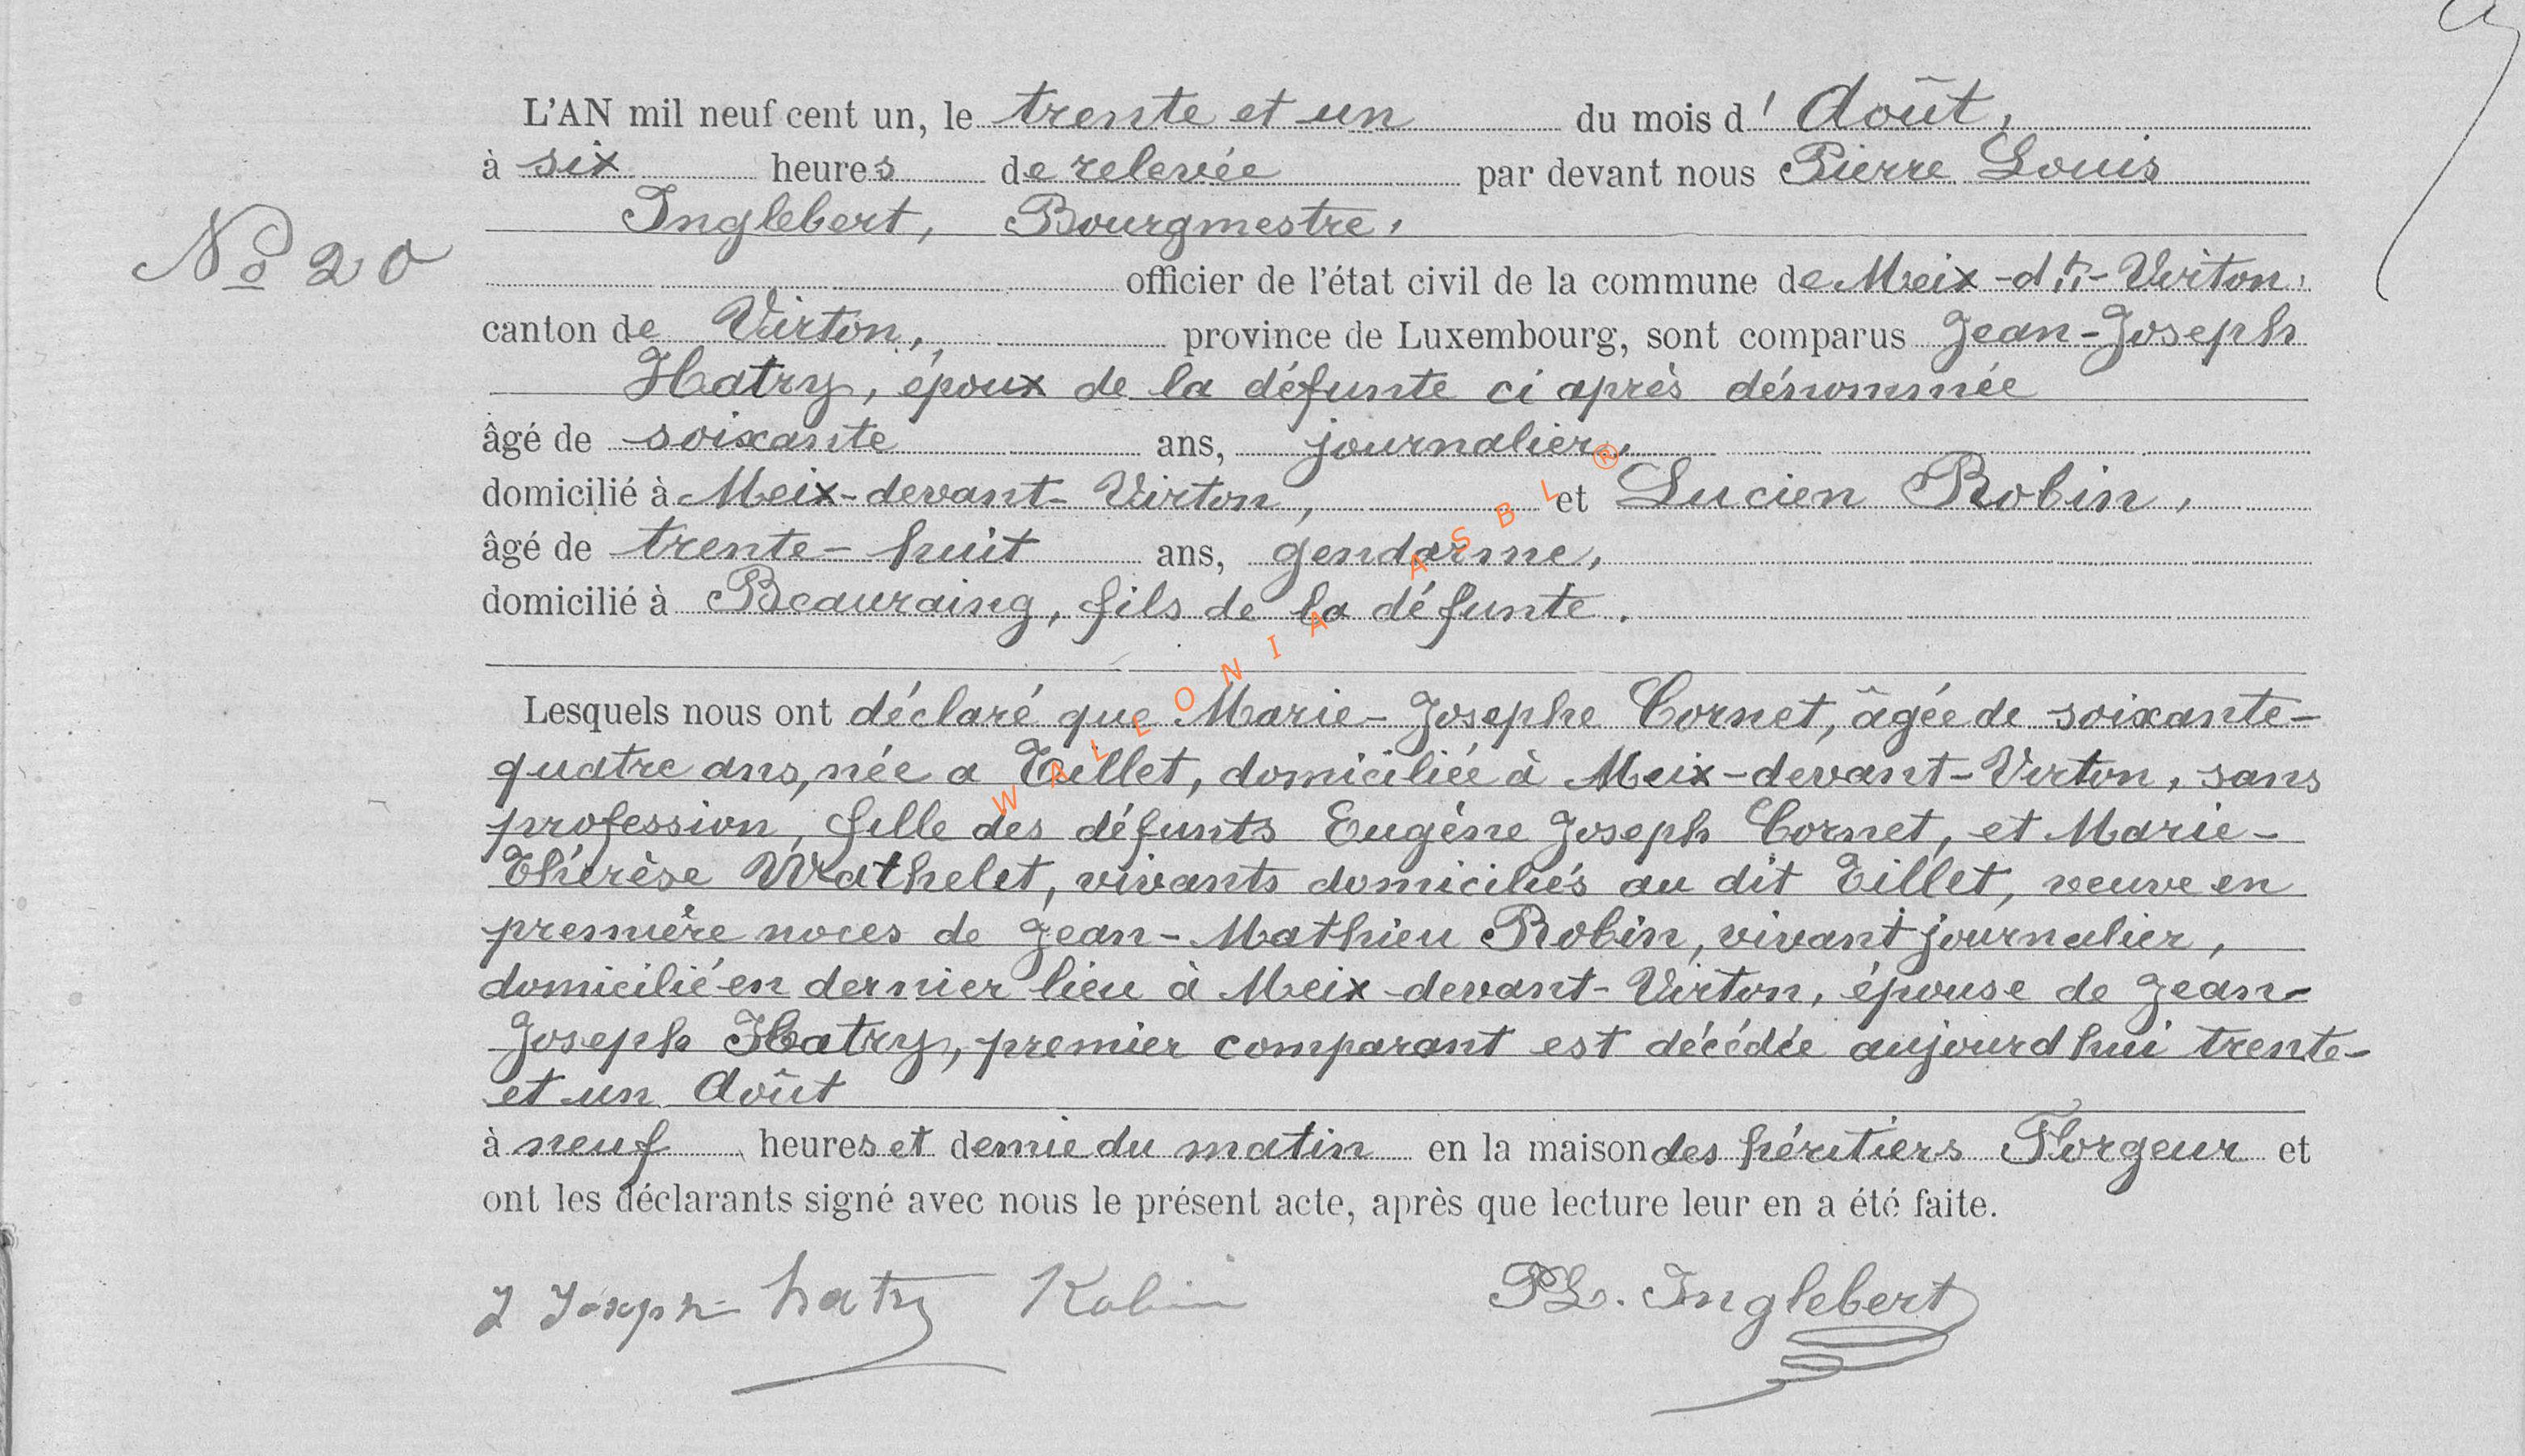 L'AN mil neuf cent un, le trente et un du mois d' Août,
à six heures de relevée par devant nous Pierre Louis
Inglebert, Bourgmestre,
No 20
officier de l'état civil de la commune de Meix-dt-Virton,
canton de Virton, province de Luxembourg, sont comparus Jean-Joseph
Hatry, époux de la défunte ci après dénommée
âgé de soixante ans, journalier,
domicilié à Meix-devant-Virton, et Lucien Robin,
âgé de trente-huit ans, gendarme,
domicilié à Beauraing, fils de la défunte.
Lesquels nous ont déclaré que Marie-Josephe Cornet, âgée de soixante-
quatre ans, née a Tillet, domiciliée à Meix-devant-Virton, sans
profession, fille des défunts Eugène Joseph Cornet, et Marie-
Thérèse Wathelet, vivants domiciliés au dit Tillet, veuve en
première noces de Jean-Mathieu Robin, vivant journalier,
domicilié en dernier lieu à Meix-devant-Virton, épouse de Jean-
Joseph Hatry, premier comparant est décédée aujourd'hui trente-
et un Août
à neuf heures et demie du matin en la maison des héritiers Forgeur et
ont les déclarants signé avec nous le présent acte, après que lecture leur en a été faite.
J Joseph hatry Robin PL. Inglebert
WALLONIA ASBL ®